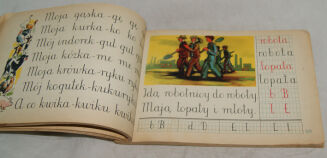 Moja gąska-gę gę
Moja kurka-ko ko
Mój indorek-gul gul
Moja kózka-me me
Moja krówka-ryku
Mój kogutek-kukuryku
A co kurka-kurku kurku
robota,
robota
łopata,
łopata
Idą robotnicy do roboty.
Mają łopaty i młoty.
b B
Ł Ł
b B d D Ł L l